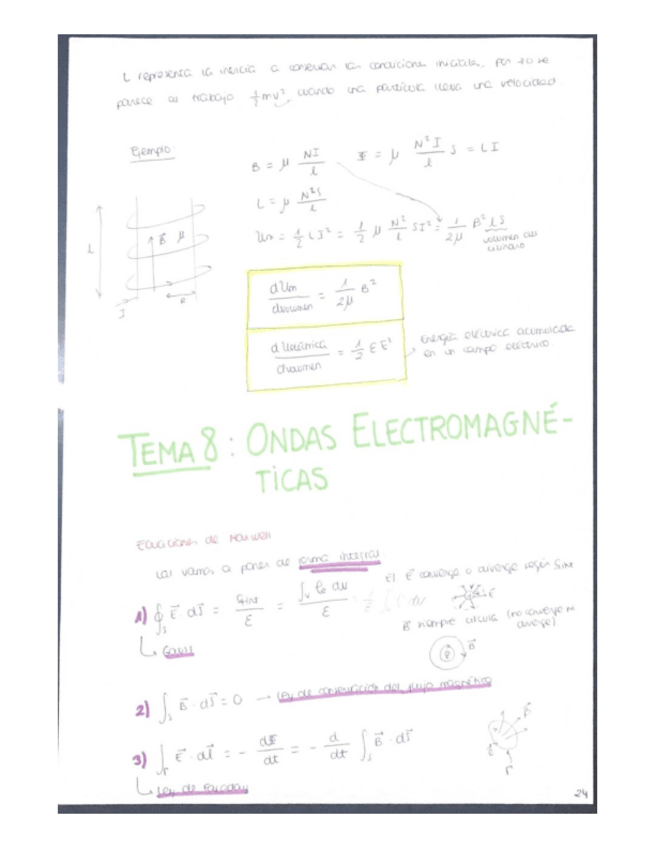 L representa la inercia a conservar las condiciones iniciales, por eso se
parece al trabajo ½mv² cuando una partícula lleva una velocidad.
Ejemplo:
B = μ NI/l    Φ = μ N²I/l S = LI
L = μ N²S/l
Um = ½ LI² = ½ μ N²/l SI² = 1/2μ B² lS
volumen del
cilindro
L
B⃗ μ
I
R
dUm/dvolumen = 1/2μ B²
dUelec/dvolumen = ½ εE²
Energía eléctrica acumulada
en un campo eléctrico.
TEMA 8: ONDAS ELECTROMAGNÉ-
TICAS
Ecuaciones de Maxwell
Las vamos a poner de forma integral.
El E⃗ converge o diverge según
1) ∮s E⃗ · dS⃗ = qint/ε = ∫v ρe dv/ε
B⃗ siempre circula (no converge ni
diverge)
Gauss
B⃗
2) ∫s B⃗ · dS⃗ = 0 → Ley de conservación del flujo magnético
3) ∫Γ E⃗ · dl⃗ = - dΦ/dt = - d/dt ∫s B⃗ · dS⃗
B⃗
Γ
Ley de Faraday
24